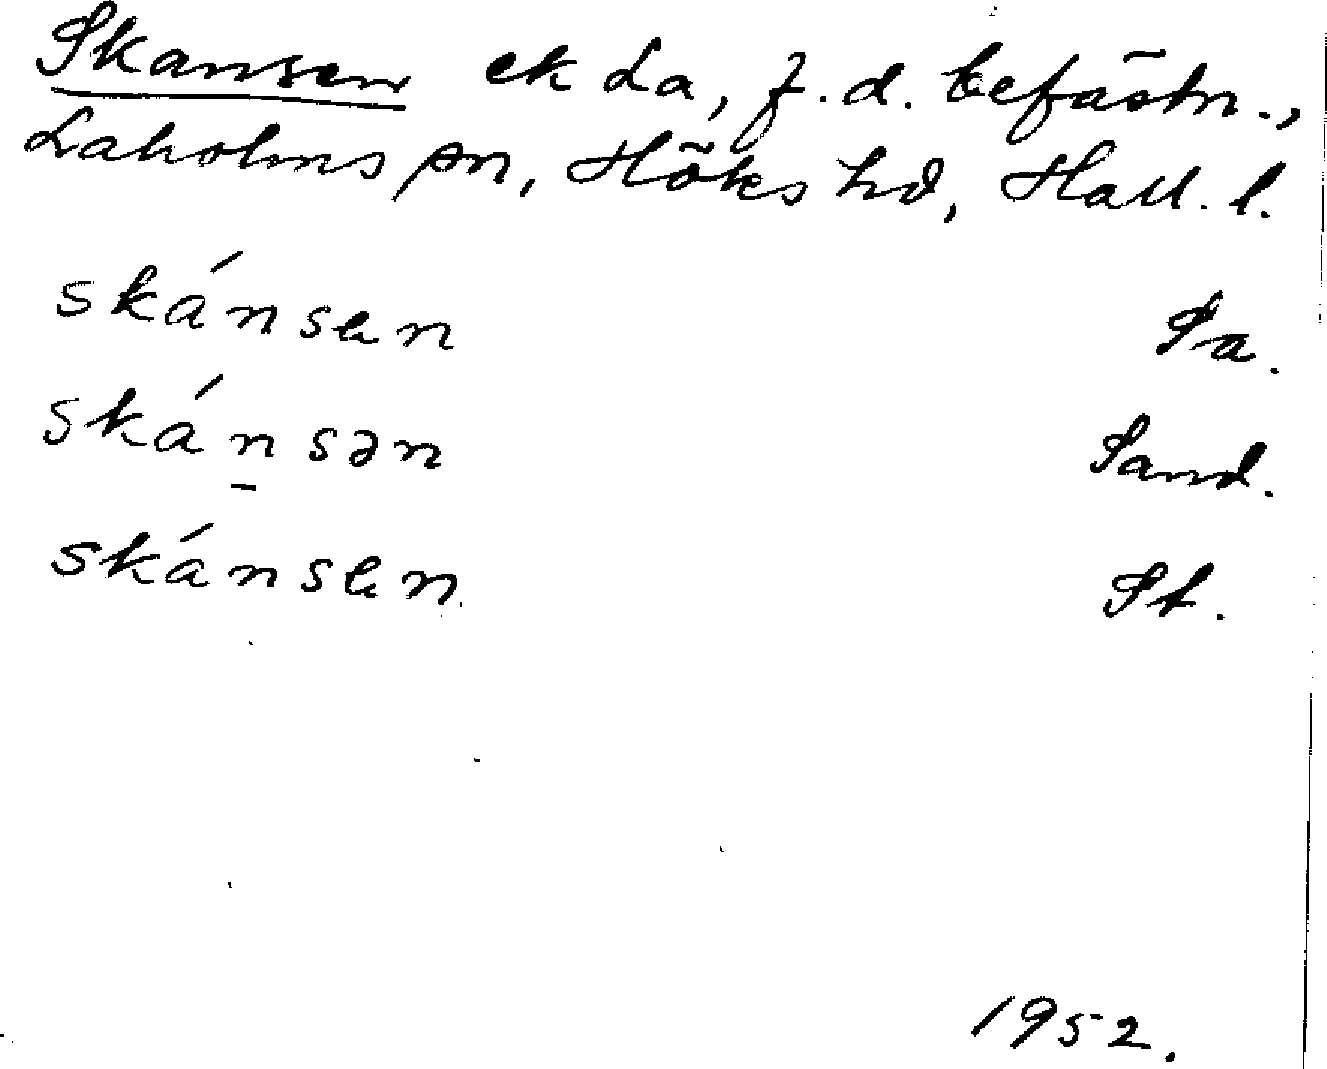 Skansen ek La, f.d. befästn.,
Laholms sn, Höks hd, Hall. l.
skánsen Sa.
skánsən Sand.
skánsen St.
1952.